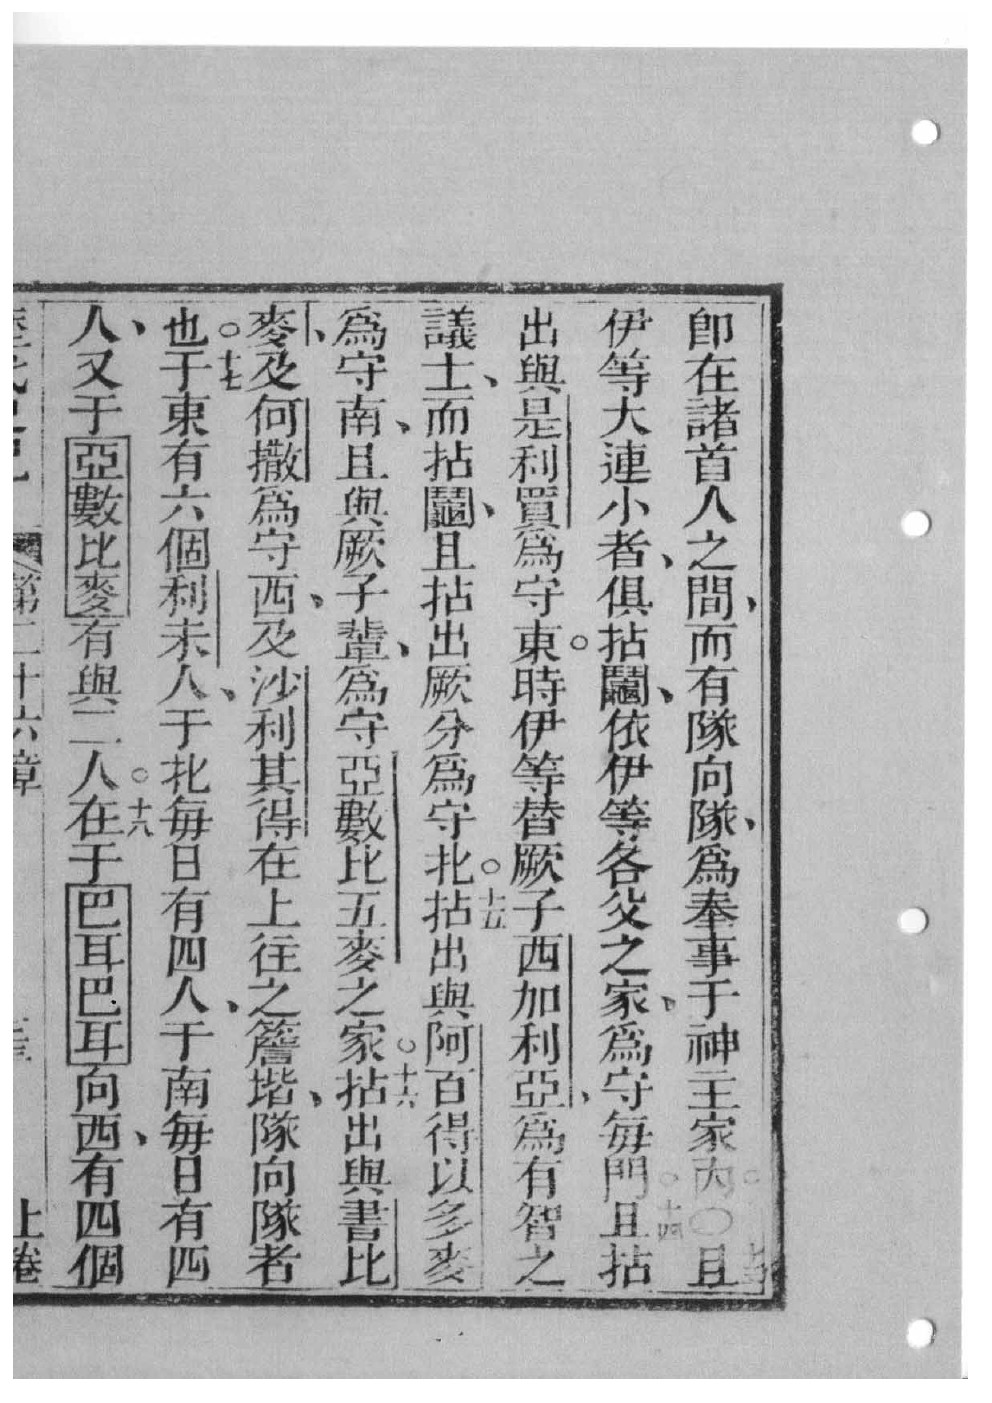 卽在諸首人之間、而有隊向隊、爲奉事于神主家內。〇且
伊等大連小者、俱拈鬮、依伊等各父之家、爲守每門。十四且拈
出與是利買爲守東。時伊等替厥子西加利亞、爲有智之
議士、而拈鬮、且拈出厥分爲守北。十五拈出與阿百得以多麥
爲守南、且與厥子輩、爲守亞數比五麥之家。十六拈出與書比
麥、及何撒爲守西、及沙利其得在上往之簷堦、隊向隊者
也。十七于東有六個利未人、于北每日有四人、于南每日有四
人、又于亞數比麥有與二人。十八在于巴耳巴耳向西、有四個
第二十六章
上卷